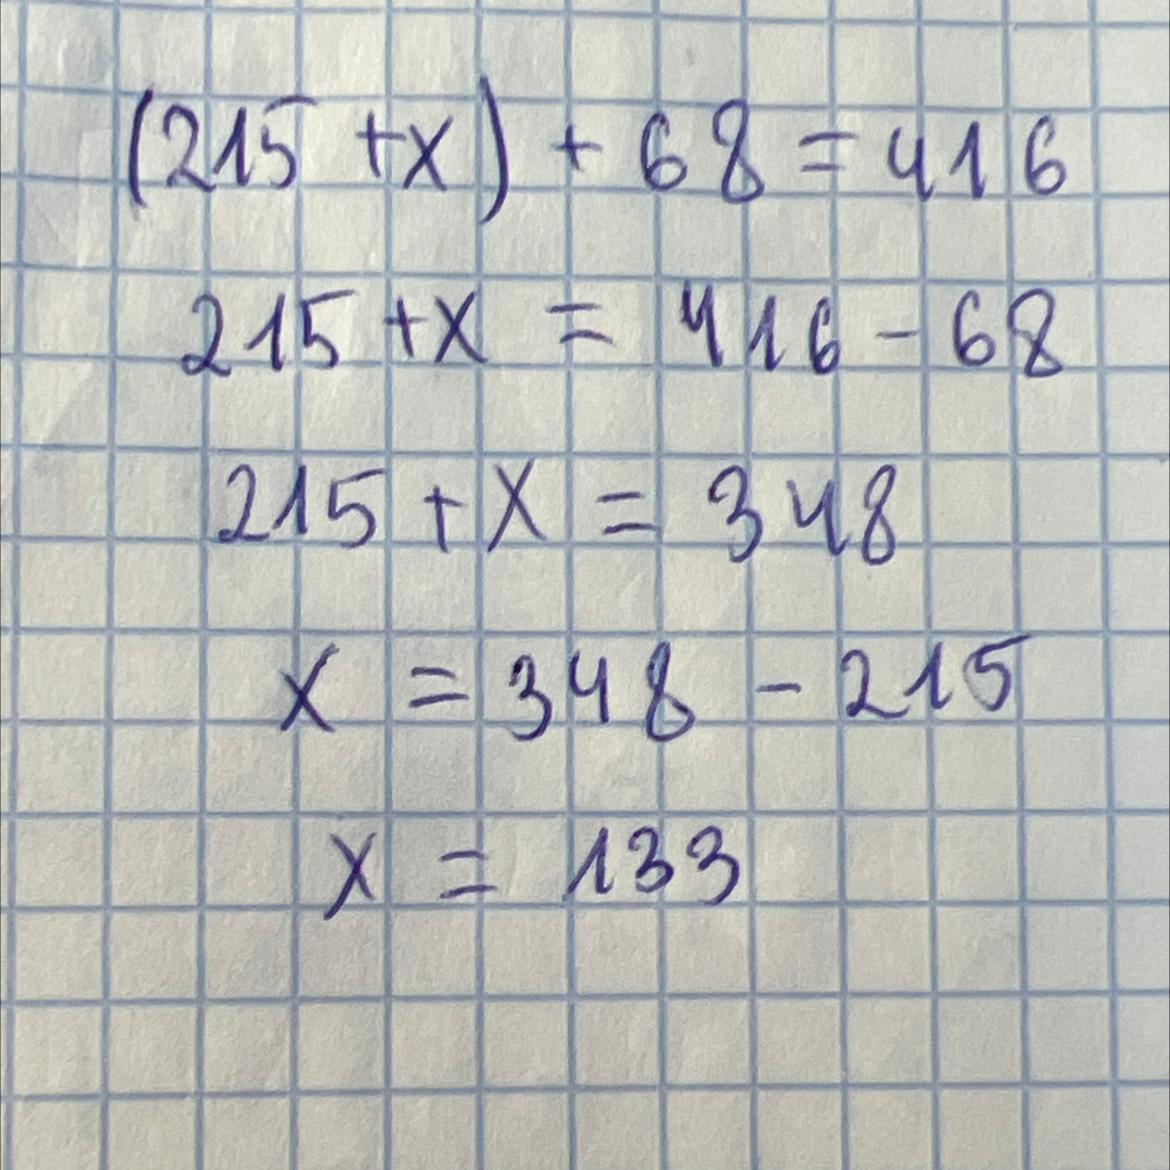 (215 + x) + 68 = 416
215 + x = 416 - 68
215 + x = 348
x = 348 - 215
x = 133